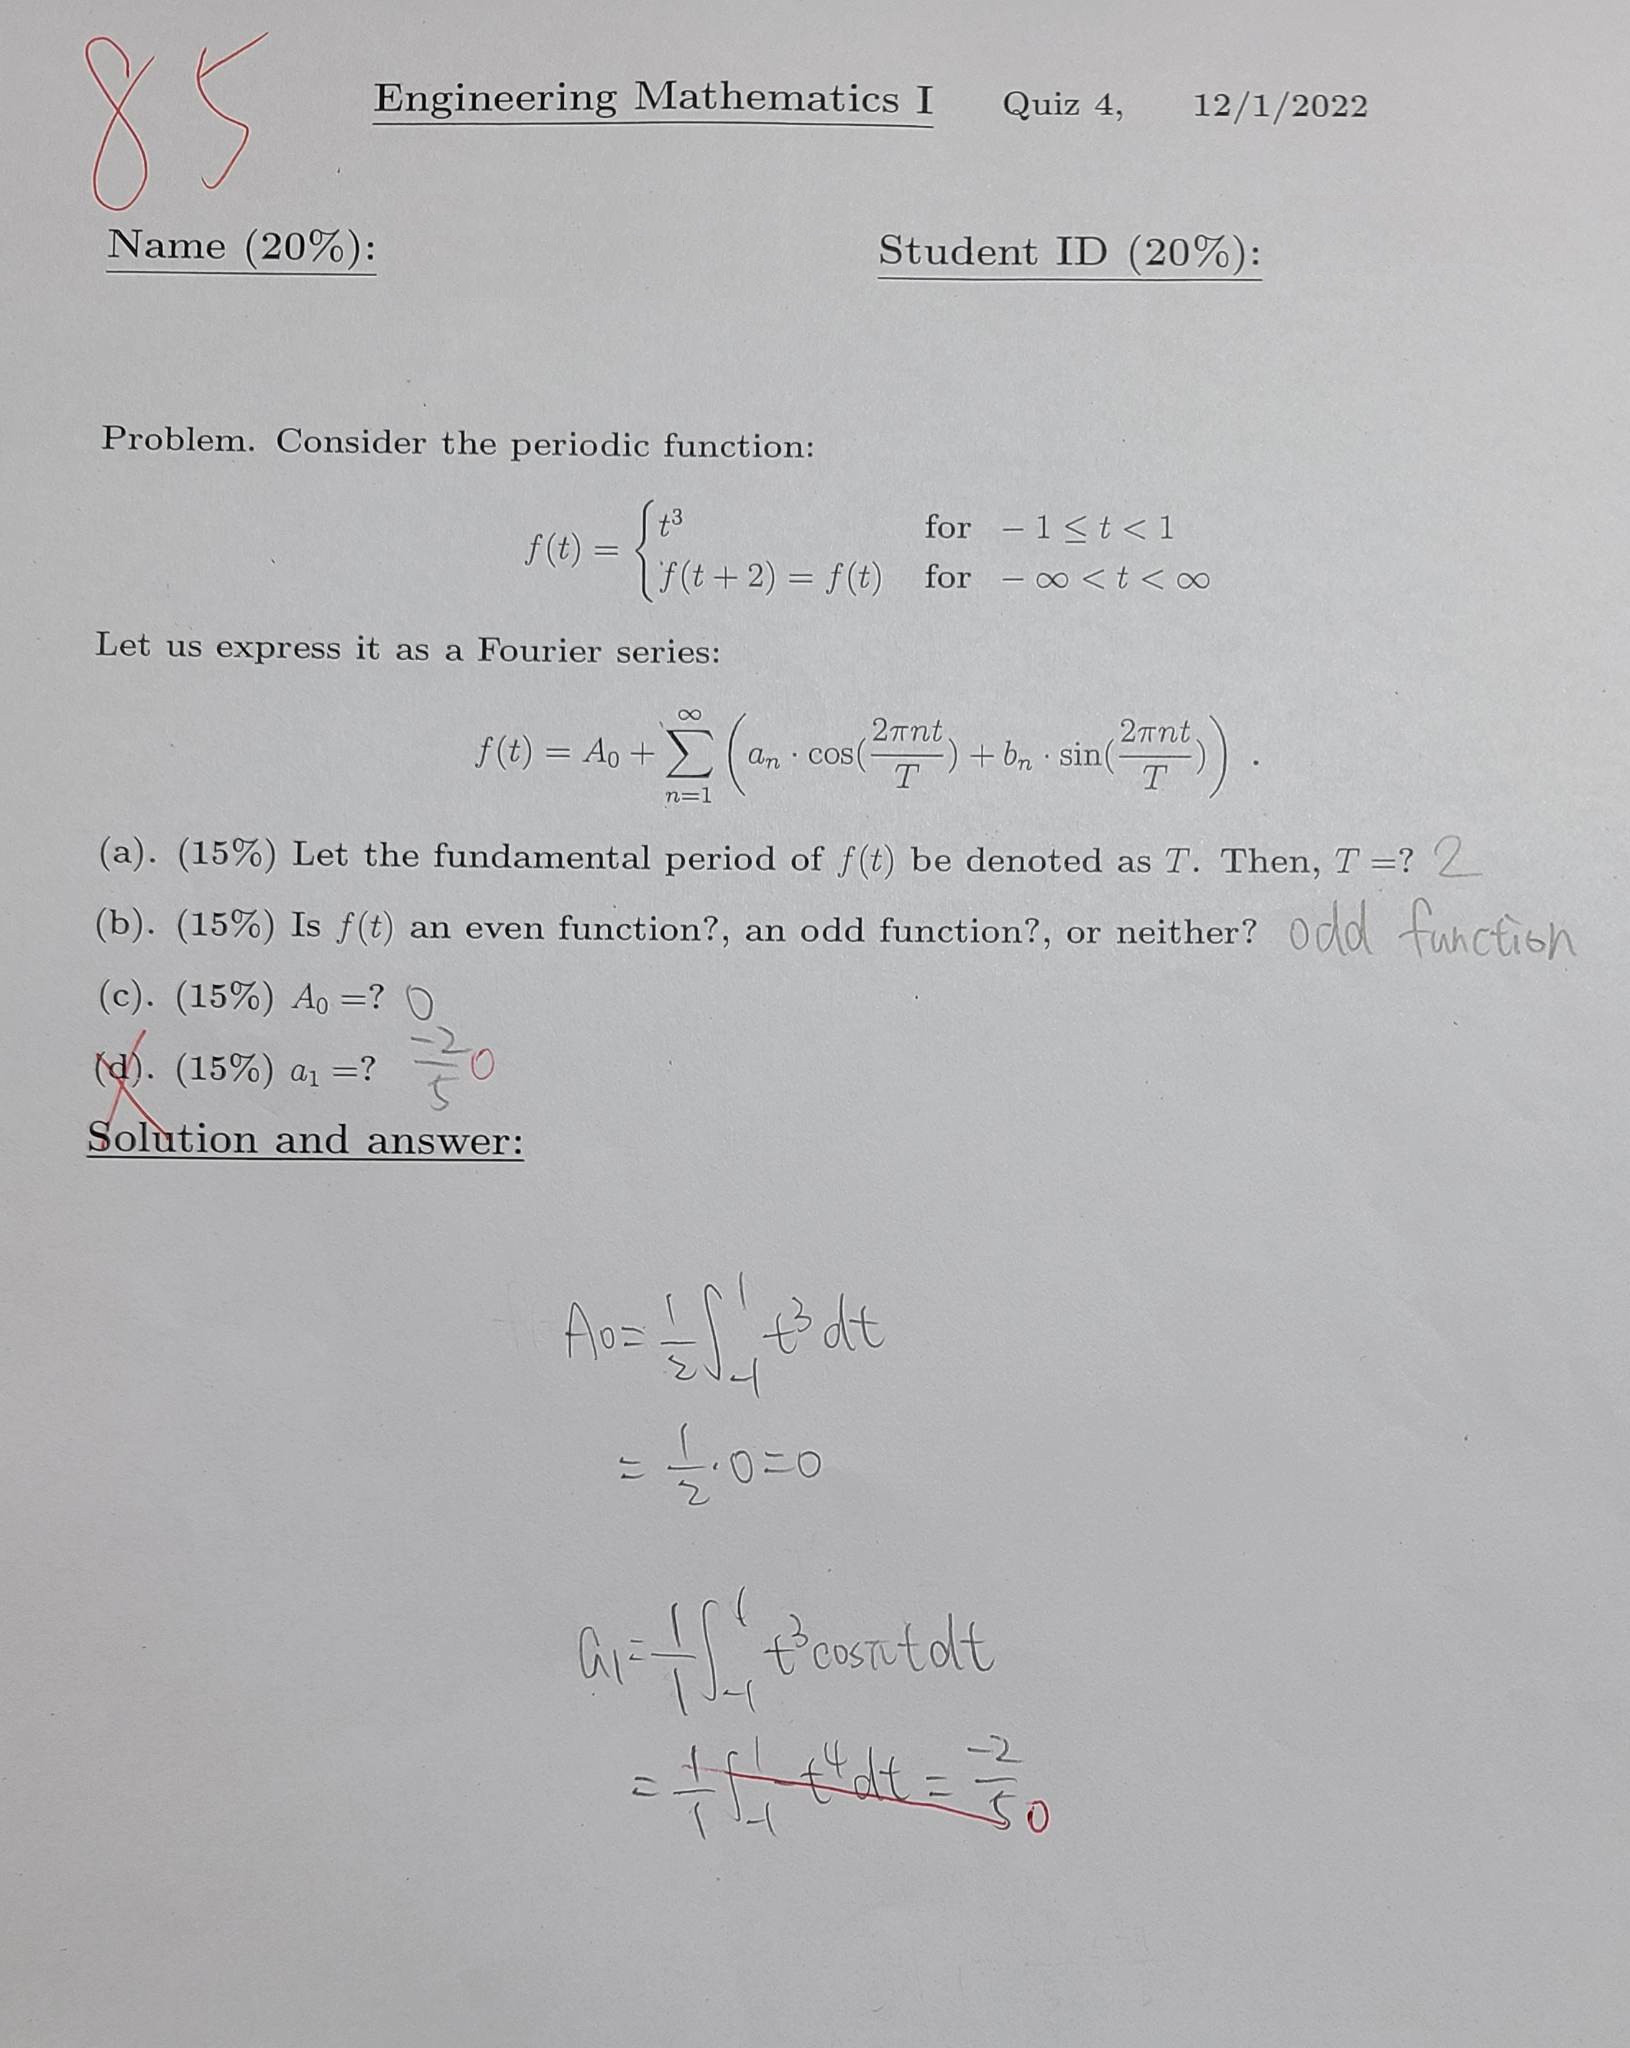 85
Engineering Mathematics I Quiz 4, 12/1/2022
Name (20%): Student ID (20%):
Problem. Consider the periodic function:
f(t) = { t³ for − 1 ≤ t < 1
f(t + 2) = f(t) for − ∞ < t < ∞
Let us express it as a Fourier series:
f(t) = A₀ + ∑_{n=1}^{∞} ( aₙ · cos(2πnt/T) + bₙ · sin(2πnt/T) ) .
(a). (15%) Let the fundamental period of f(t) be denoted as T. Then, T =? 2
(b). (15%) Is f(t) an even function?, an odd function?, or neither? odd function
(c). (15%) A₀ =? 0
(d). (15%) a₁ =? -2/5 0
Solution and answer:
A₀ = 1/2 ∫_{-1}^{1} t³ dt
= 1/2 · 0 = 0
a₁ = 1/1 ∫_{-1}^{1} t³ cosπt dt
= 1/1 ∫_{-1}^{1} -t⁴ dt = -2/5 0